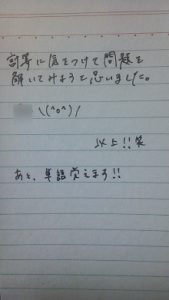 計算に気をつけて問題を
解いてみようと思いました。
\(^o^)/
以上!!笑
あと、単語覚えます!!